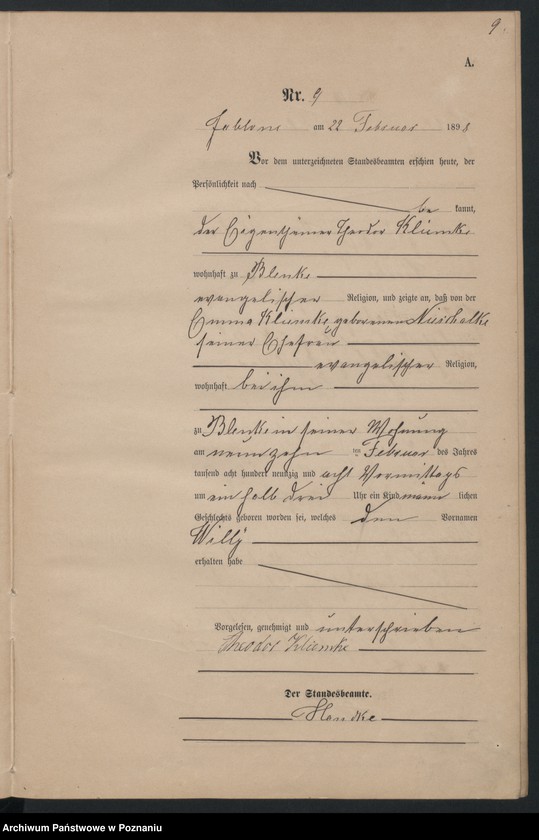 9.
A.
Nr. 9
Jablone am 22 Februar 1898
Vor dem unterzeichneten Standesbeamten erschien heute, der
Persönlichkeit nach
be kannt,
der Eigenthümer Theodor Kliemke
wohnhaft zu Blenke
evangelischer Religion, und zeigte an, daß von der
Emma Kliemke geborenen Nieschalke
seiner Ehefrau
evangelischer Religion,
wohnhaft bei ihm
zu Blenke in seiner Wohnung
am neunzehn ten Februar des Jahres
tausend acht hundert neunzig und acht Vormittags
um ein halb drei Uhr ein Kind männ lichen
Geschlechts geboren worden sei, welches den Vornamen
Willy
erhalten habe
Vorgelesen, genehmigt und unterschrieben
Theodor Kliemke
Der Standesbeamte.
Handke
Archiwum Państwowe w Poznaniu